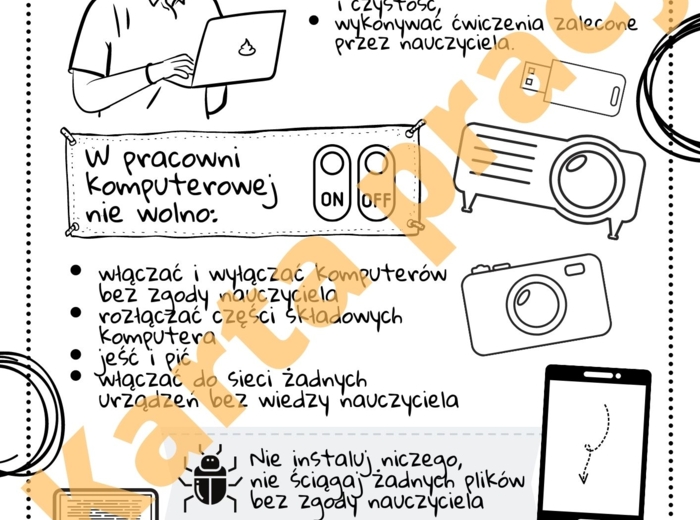 i czystość,
wykonywać ćwiczenia zalecone
przez nauczyciela.
W pracowni
komputerowej
nie wolno:
ON OFF
włączać i wyłączać komputerów
bez zgody nauczyciela
rozłączać części składowych
komputera
jeść i pić
włączać do sieci żadnych
urządzeń bez wiedzy nauczyciela
Nie instaluj niczego,
nie ściągaj żadnych plików
bez zgody nauczyciela
Karta pracy